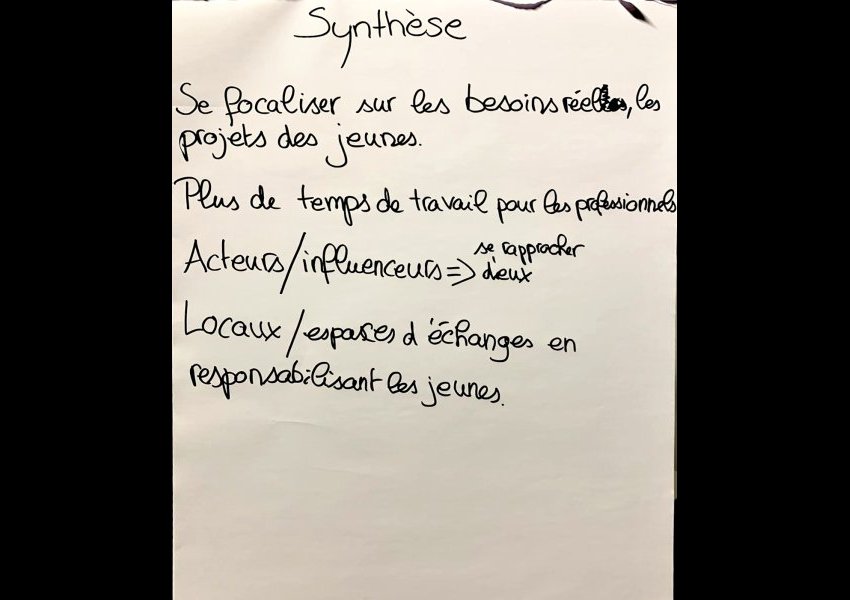 Synthèse
Se focaliser sur les besoins réels, les
projets des jeunes.
Plus de temps de travail pour les professionnels
Acteurs/influenceurs => se rapprocher
d'eux
Locaux/espaces d'échanges en
responsabilisant les jeunes.